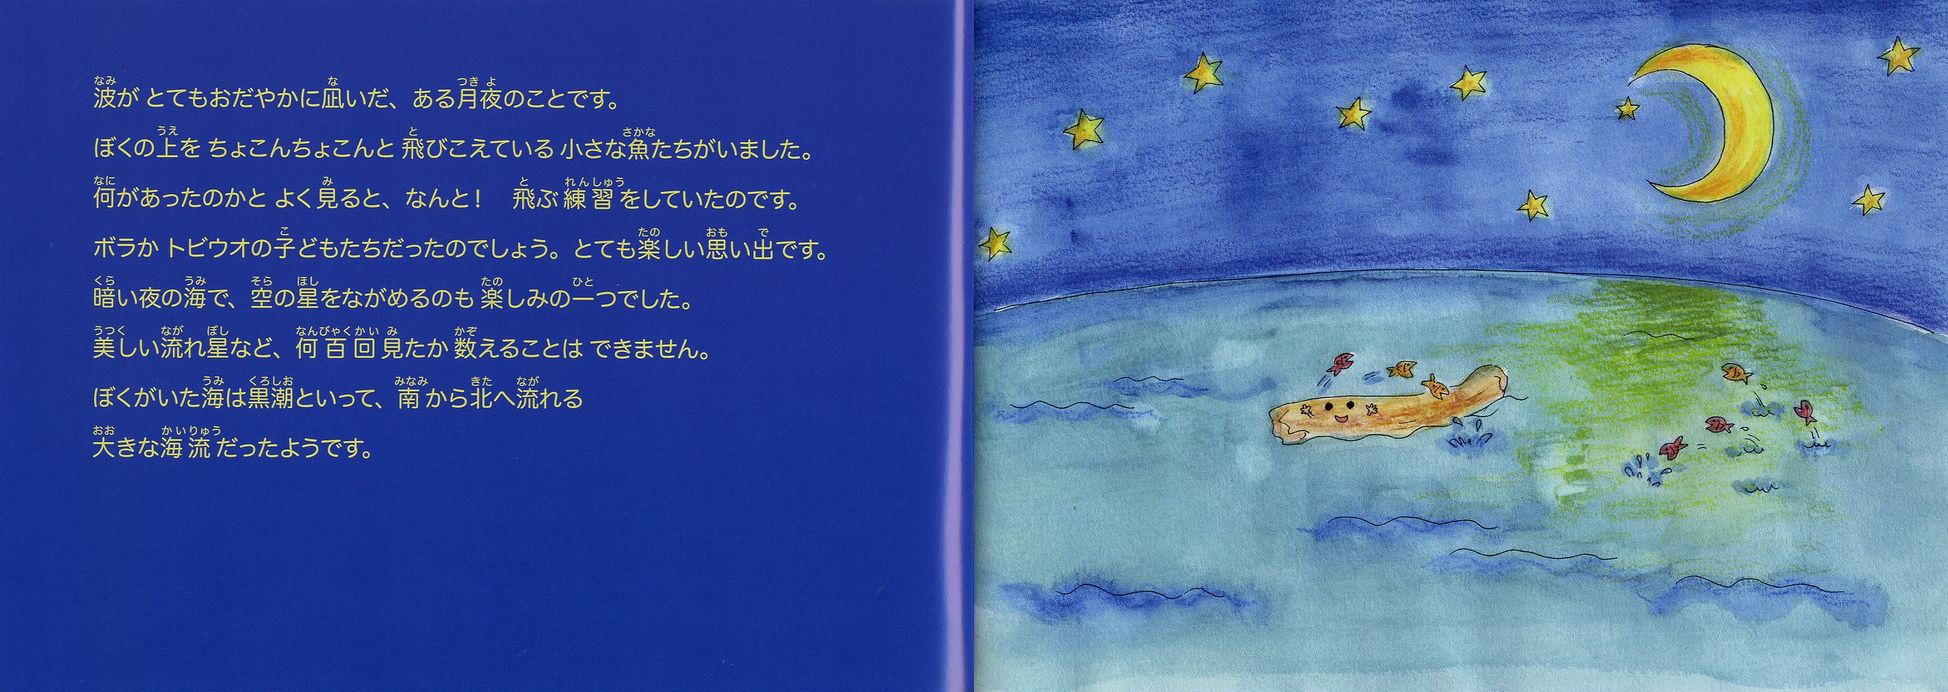 波が とてもおだやかに凪いだ、ある月夜のことです。
ぼくの上を ちょこんちょこんと 飛びこえている 小さな魚たちがいました。
何があったのかと よく見ると、なんと！　飛ぶ練習をしていたのです。
ボラか トビウオの子どもたちだったのでしょう。とても楽しい思い出です。
暗い夜の海で、空の星をながめるのも 楽しみの一つでした。
美しい流れ星など、何百回見たか 数えることは できません。
ぼくがいた海は黒潮といって、南から北へ流れる
大きな海流だったようです。